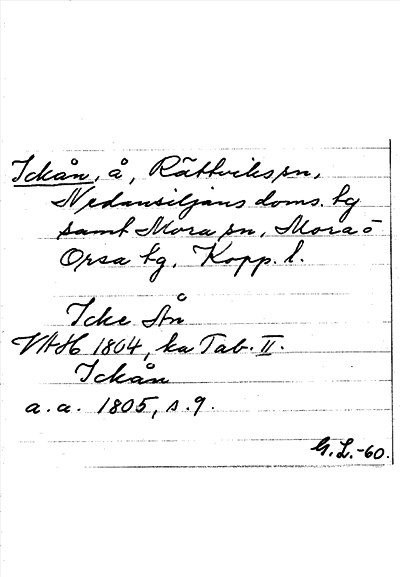 Ickån, å, Rättviks sn,
Nedansiljans doms. tg
samt Mora sn, Mora o
Orsa tg. Kopp. l.
Icke Ån
VAH 1804, ka Tab. II.
Ickån
a. a. 1805, s. 9.
G. L. -60.